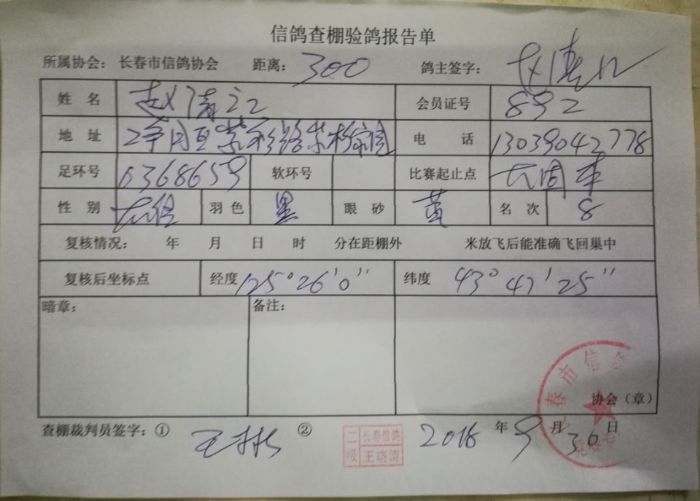 信鸽查棚验鸽报告单
所属协会：长春市信鸽协会 距离：300 鸽主签字：
姓 名 赵 会员证号 892
地 址 电 话 13039042778
足环号 0368659 软环号 比赛起止点
性 别 羽色 黑 眼 砂 黄 名 次 8
复核情况： 年 月 日 时 分在距棚外 米放飞后能准确飞回巢中
复核后坐标点 经度 125°26′0″ 纬度 43°47′25″
暗章： 备注：
长春市信鸽
协会（章）
查棚裁判员签字：① ② 二级 长春信鸽 2016 年 9 月 30 日